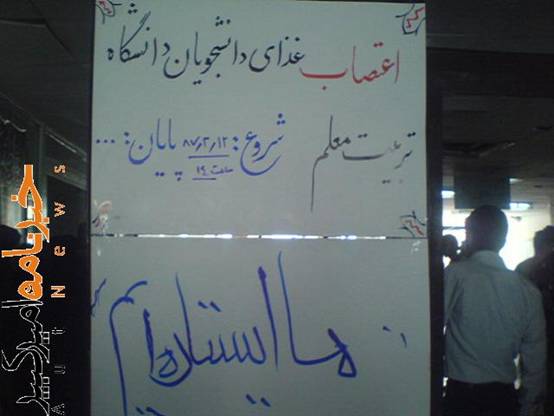 اعتصاب غذای دانشجویان دانشگاه
تربیت معلم
شروع: ۸۷/۲/۱۲ پایان: ...
ساعت ۱۹
ما ایستاده ایم
خبرنامه امیرکبیر
AUT News